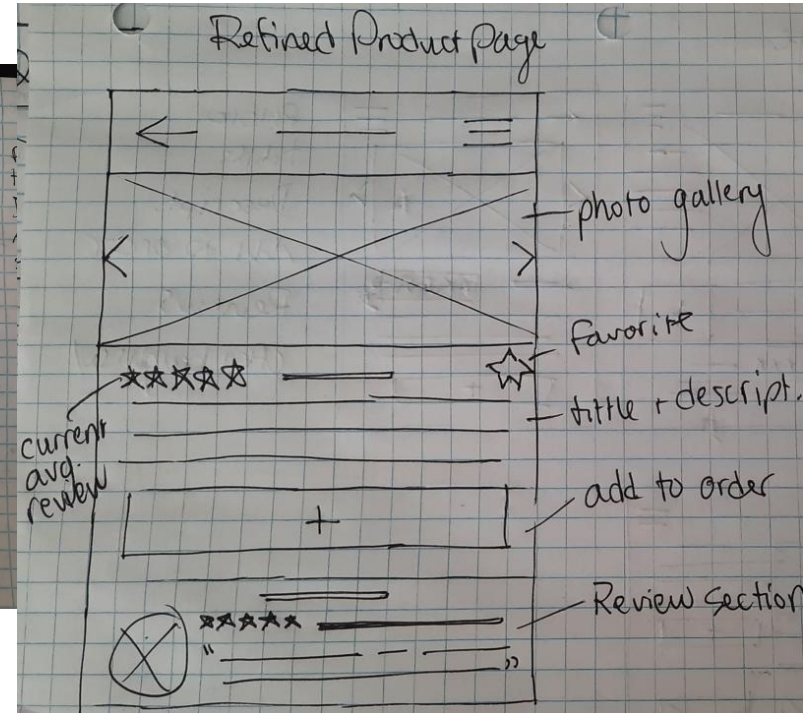 Refined Product Page
photo gallery
favorite
tittle + descript.
current
avg.
review
add to order
+
Review Section
"
"